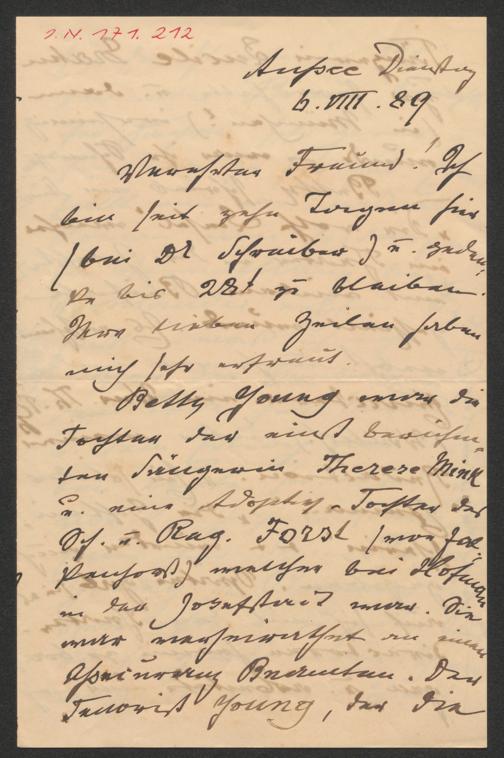 I.N. 171.212
Aussee Dienstag
6. VIII. 89
Verehrter Freund! Ich
bin seit zehn Tagen hier
(bei Dr Schreiber) u. geden-
ke bis 28t zu bleiben.
Ihre lieben Zeilen haben
mich sehr erfreut.
Betty Young war die
Tochter der einst berühm-
ten Sängerin Therese Mink
u. eine Adoptiv-Tochter des
Sch. u. Reg. Forst (vor
) welcher bei
in der Josefstadt war. Sie
war verheirathet an einen
Assecuranz Beamten. Der
Tenorist Young, der die